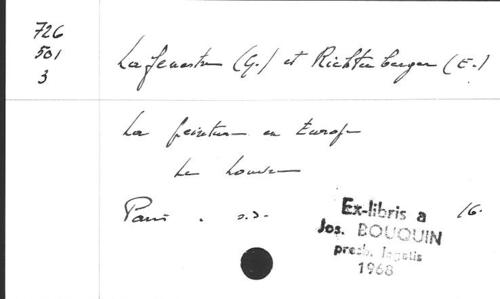 726
501
3
Lafenestre (G.) et Richtenberger (E.)
La peinture en Europe
Le Louvre
Paris . s.d. 16.
Ex-libris a
Jos. BOUQUIN
presb.
1968